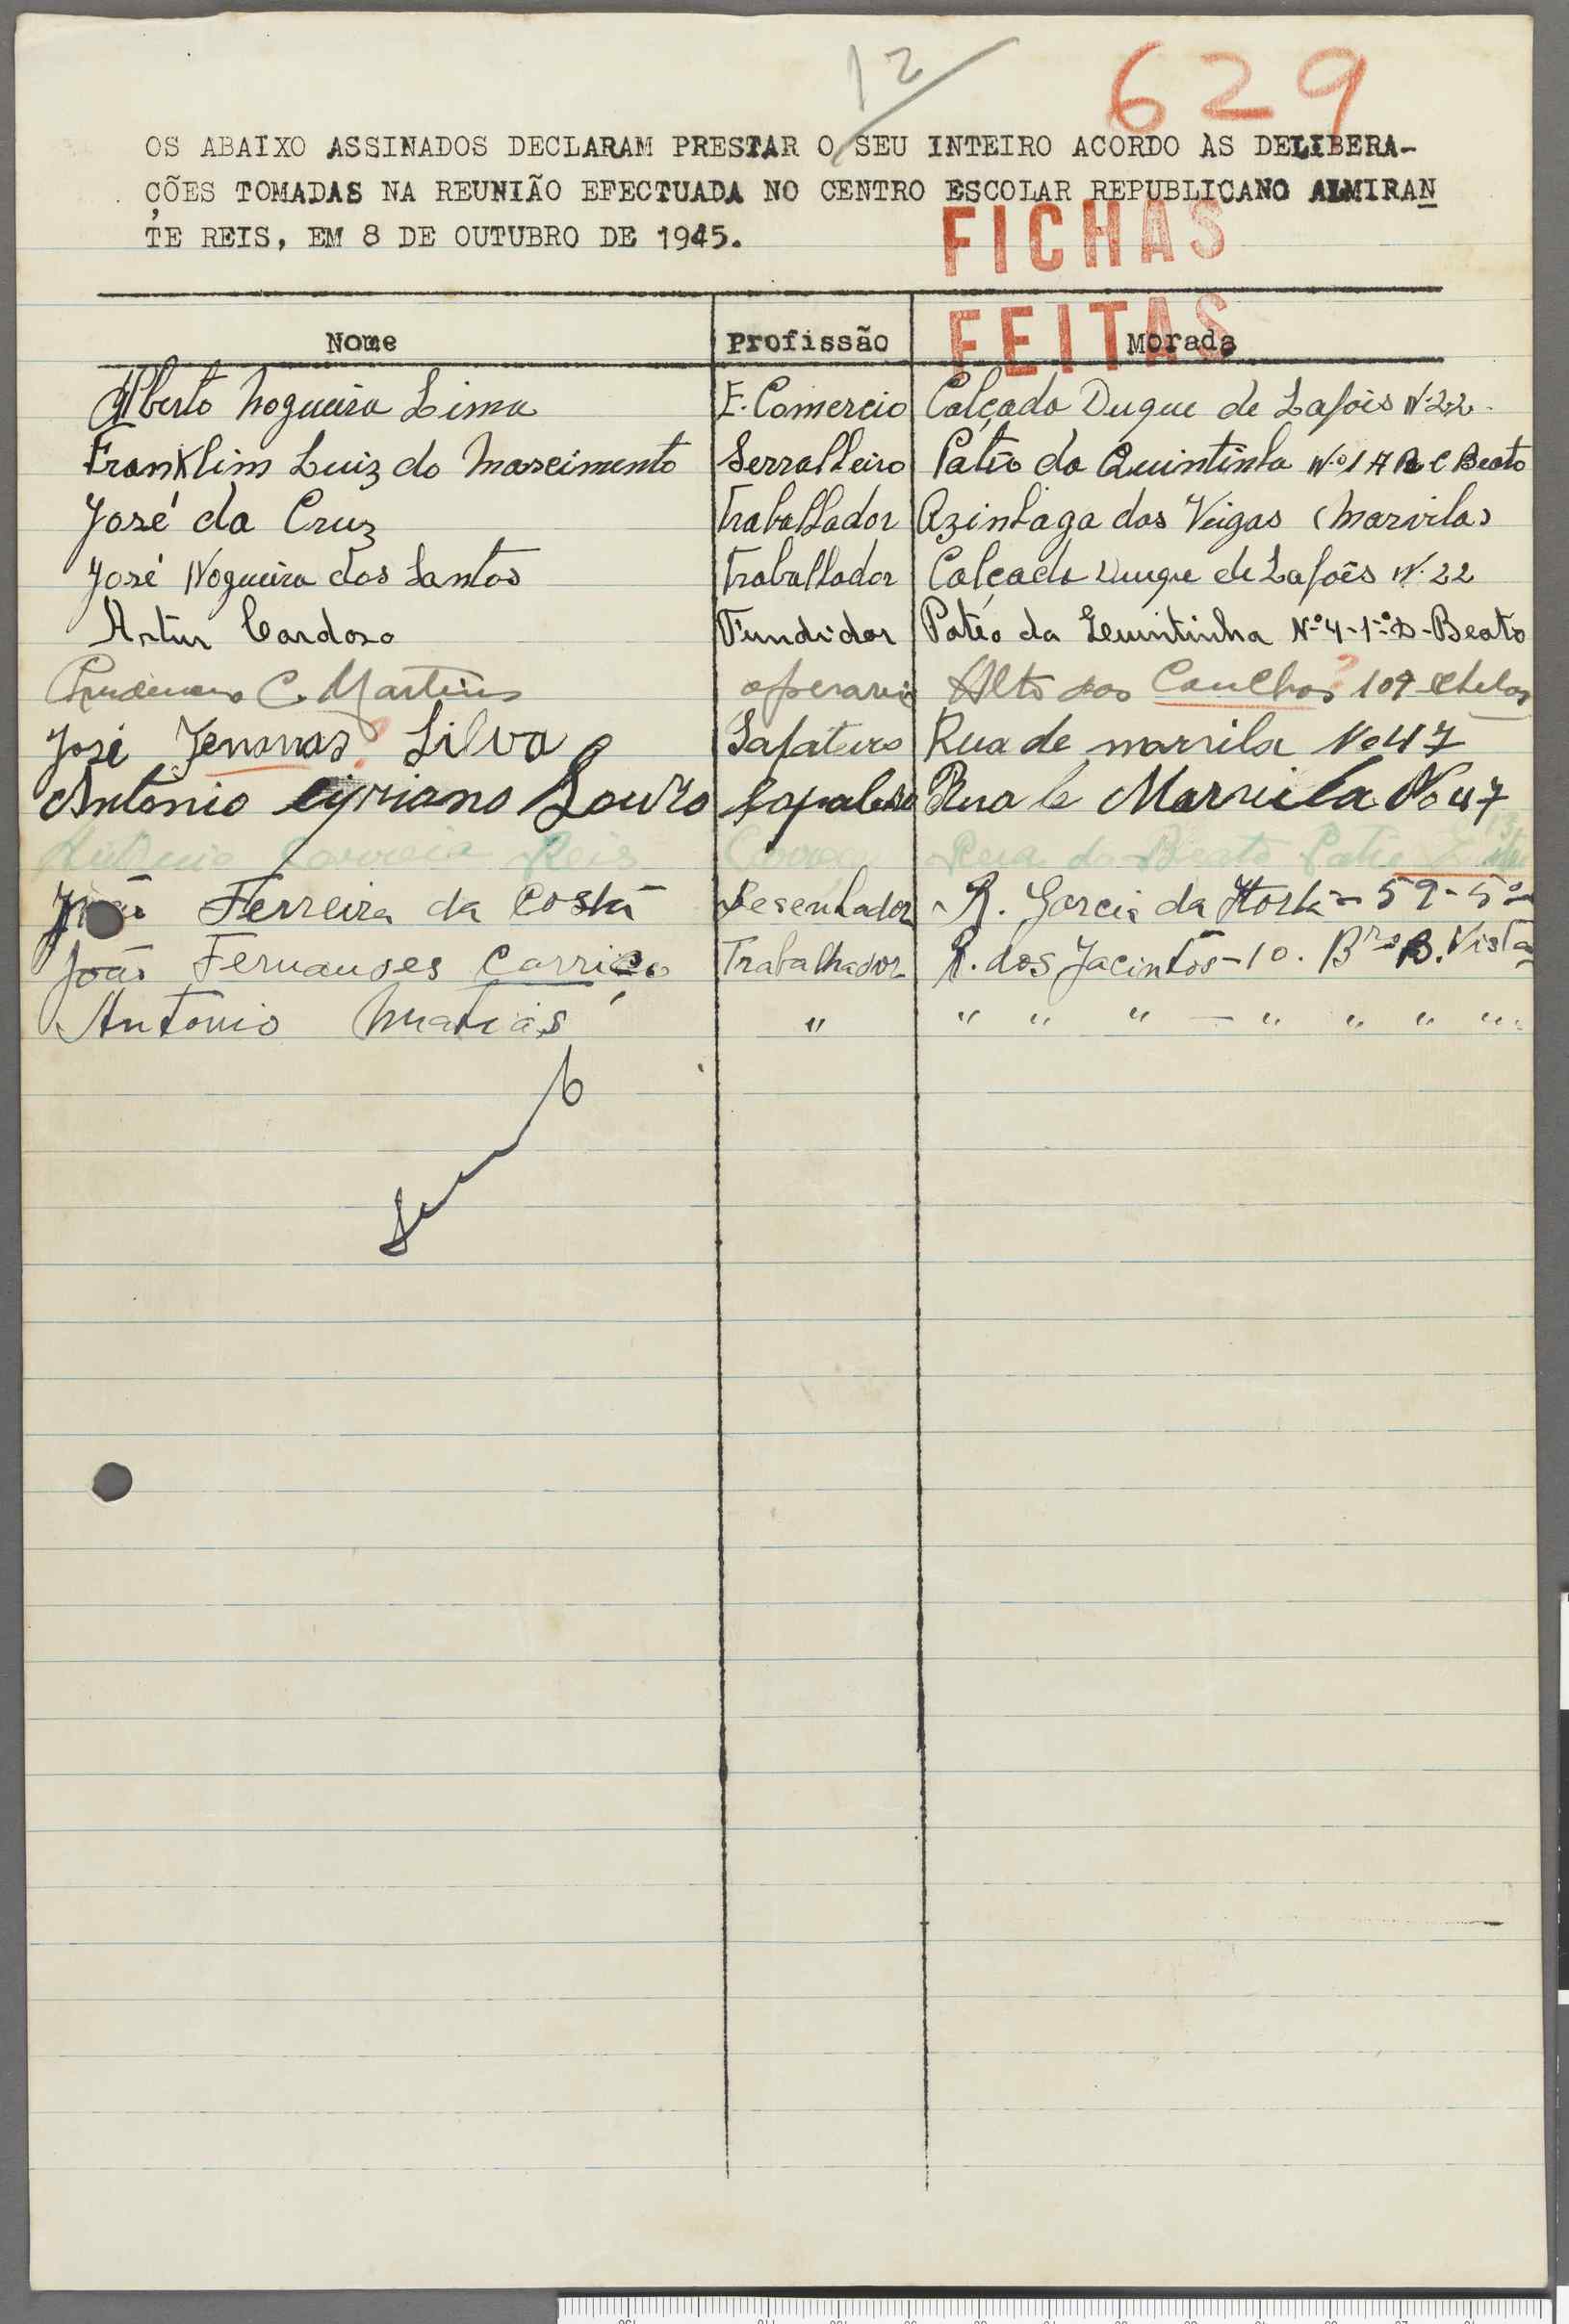 12
629
OS ABAIXO ASSINADOS DECLARAM PRESTAR O SEU INTEIRO ACORDO ÀS DELIBERA-
ÇÕES TOMADAS NA REUNIÃO EFECTUADA NO CENTRO ESCOLAR REPUBLICANO ALMIRAN
TE REIS, EM 8 DE OUTUBRO DE 1945.
FICHAS
FEITAS
Nome Profissão Morada
Alberto Nogueira Lima E. Comercio Calçada Duque de Lafões Nº 22
Franklim Luiz do Nascimento Serralheiro Patio da Quintinha Nº 1 A R C Beato
José da Cruz Trabalhador Azinhaga das Veigas (Marvila)
José Nogueira dos Santos Trabalhador Calçada Duuque de Lafões Nº 22
Artur Cardoso Fundidor Patio da Quintinha Nº 4-1º D-Beato
C. Martins operario Alto dos Conchas? 109 Chelas
José ? Silva Sapateiro Rua de marvila No 47
Antonio Cyriano Louro Rua de Marvila No 47
Antonio Correia Reis Rua do Beato Patio
João Ferreira da Costa Desenhador R. Garcia da Horta - 59 - 5º
João Fernandes Carriço Trabalhador R. dos Jacintos - 10. Brº B. Vista
Antonio Matias " " " " — " " " "